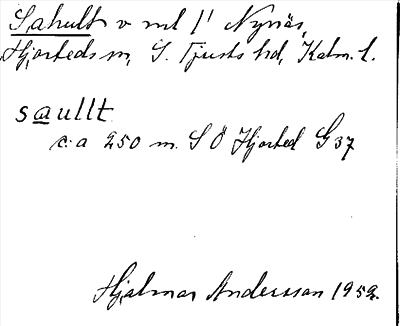 Sahult v ml l' Nynäs,
Hjorteds sn, S. Tjusts hd, Kalm. l.
saullt
c:a 250 m. S Ö Hjorted G 37
Hjalmar Andersson 1959.